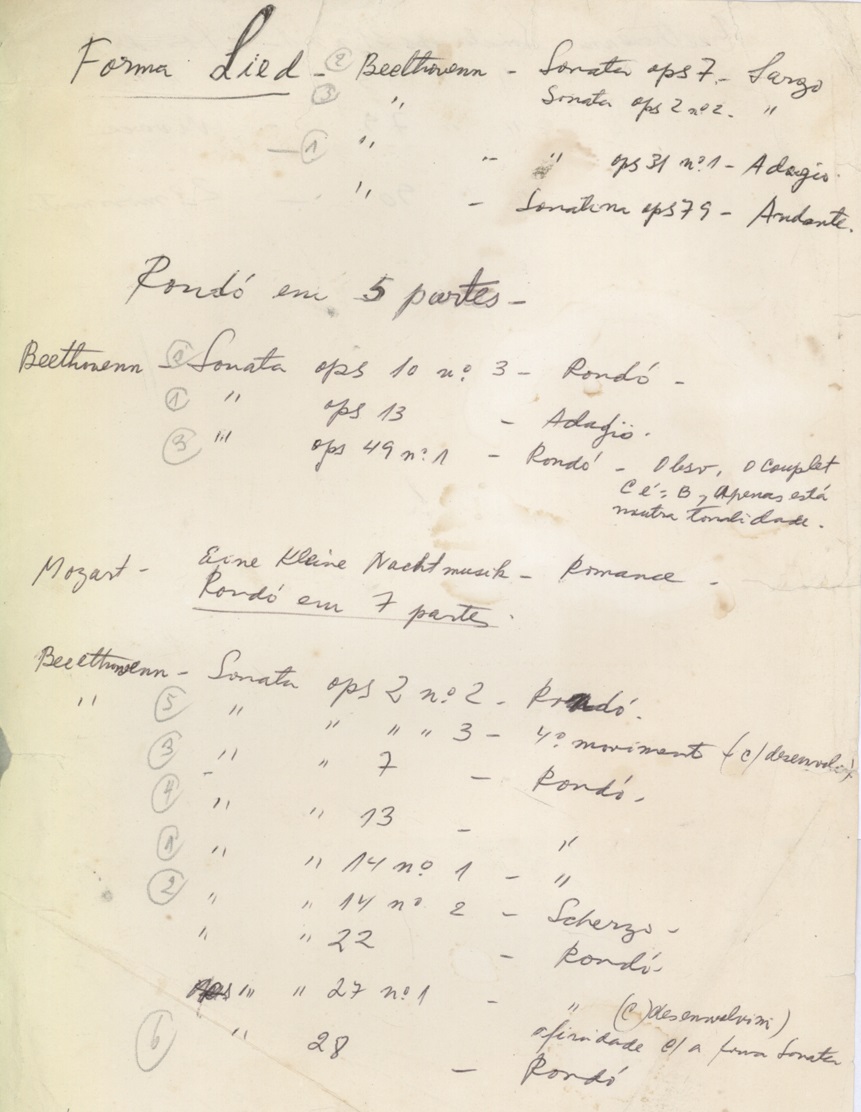 Forma Lied - ② Beethovenn - Sonata ops 7 - Largo
③ " Sonata ops 2 nº 2. "
- ① " - " ops 31 nº 1 - Adagio.
" - Sonatina ops 79 - Andante.
Rondó em 5 partes -
Beethovenn - ② Sonata ops 10 nº 3 - Rondó -
① " ops 13 - Adagio.
③ " ops 49 nº 1 - Rondó - Obsv. O couplet
C é = B, Apenas está
noutra tonalidade.
Mozart - Eine Kleine Nachtmusik - Romance -
Rondó em 7 partes.
Beethovenn - Sonata ops 2 nº 2 - Rondó.
" ⑤ " " " " 3 - 4º moviment (c/desenvolv)
③ " " 7 - Rondó.
④ " " 13 - "
① " " 14 nº 1 - "
② " " 14 nº 2 - Scherzo -
" " 22 - Rondó.
" " 27 nº 1 - " (c/desenvolvim)
afinidade c/ a forma Sonata
⑥ " 28 - Rondó